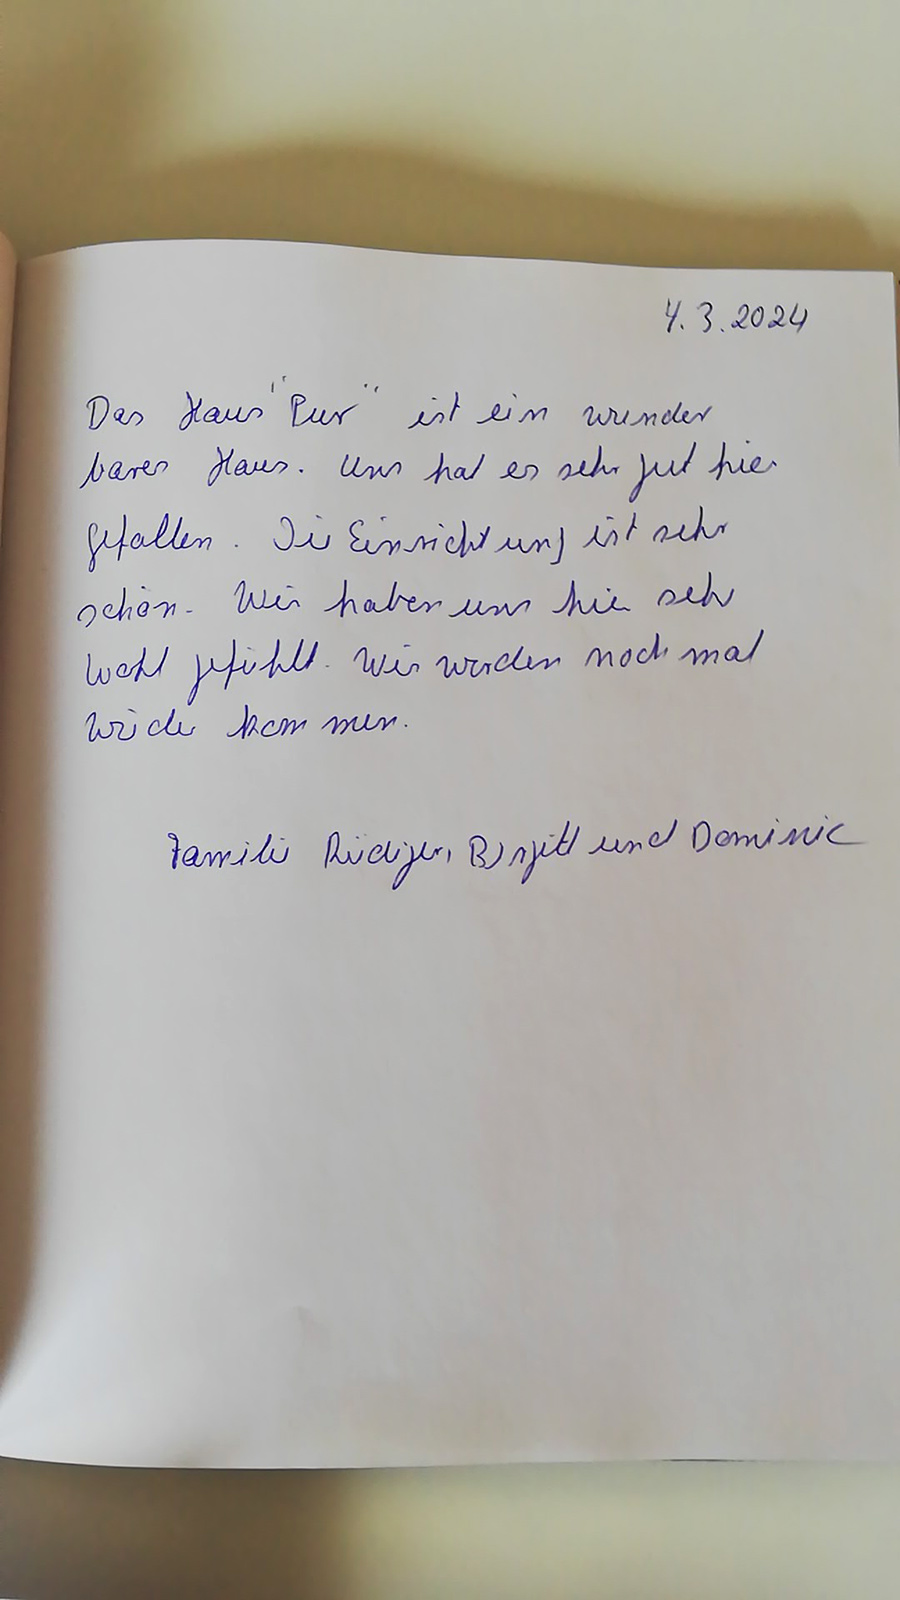 4.3.2024
Das Haus "Pur" ist ein wunder
bares Haus. Uns hat es sehr gut hier
gefallen. Die Einrichtung ist sehr
schön. Wir haben uns hier sehr
wohl gefühlt. Wir werden noch mal
wieder kommen.
Familie Rüdiger, Birgitt und Dominic